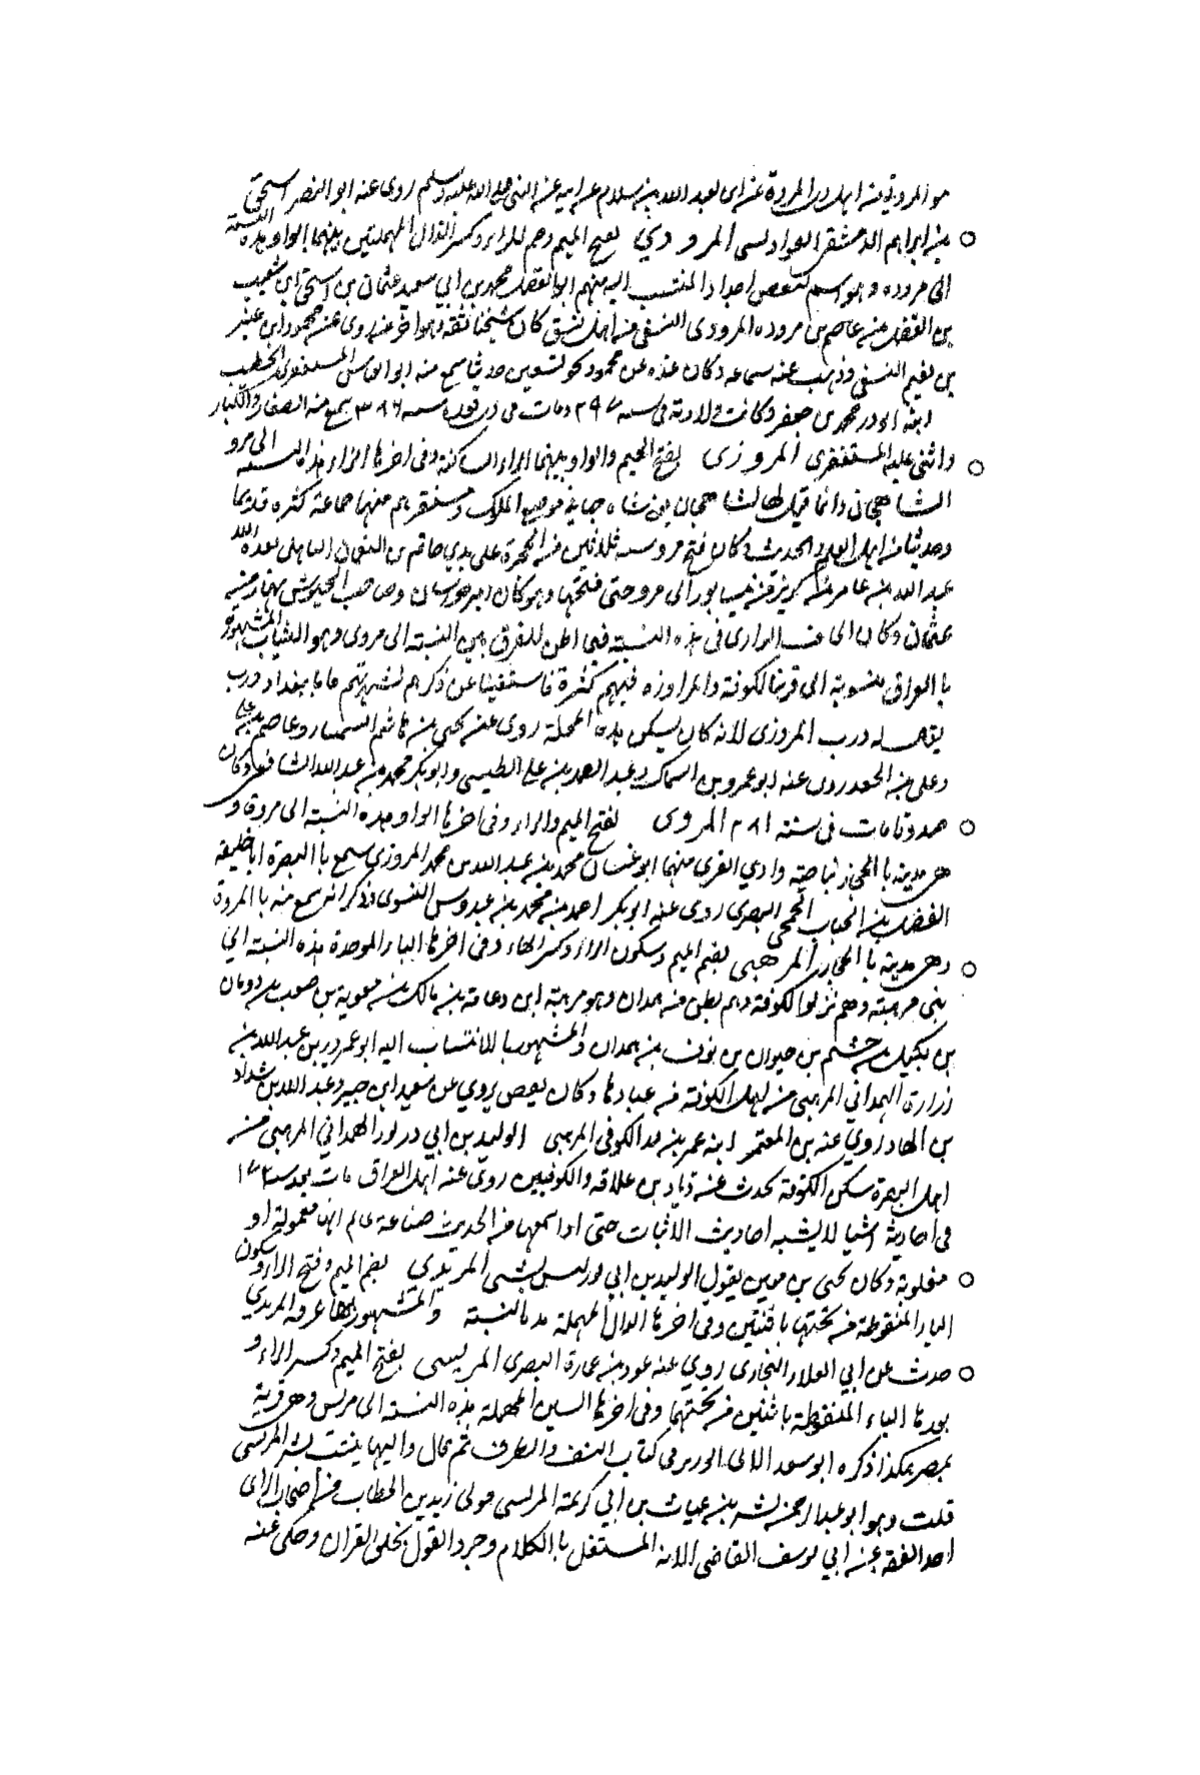 مو المروتي من اهل ذي المروة عن ابى لعبد الله بن سلام عن ابيه عن النبي صلى الله عليه وسلم روى عنه ابو النضر اسحق
بن ابراهيم الدمشقى المرودي بفتح الميم وضم الراء وكسر الذال المهملتين بينهما الواو هذه النسبة
الى مروده وهو اسم لبعض اجداد المنتسب اليه منهم ابو الفضل محمد بن ابي سعيد عثمان بن اسحق ابن شعيب
بن الفضل بن عاصم بن مروده المرودى النسفى من اهل نسف كان شيخنا ثقة وهو اخر من روى عن محمود ابن عنبر
بن نعيم النسفى وذهب عنه سماعه وكان عنده عن محمود نحو تسعين حديثا سمع منه ابو العباس المستغفرى الخطيب
ابنه ابو ذر محمد بن جعفر وكانت ولادته فى سنه ٢٩٧ ومات فى ذى قعدة سنه ٣٨٦ سمع منه الصغار والكبار
واثنى عليه المستغفرى المروزى بفتح الميم والواو بينهما الراء الساكنة وفى اخرها الزاء هذه النسبه الى مرو
الشاهجانى وانما قيل لها الشاهجان يعنى شاه جاى موضع الملوك ومستقرهم منها جماعة كثره قديما
وحديثا من اهل العلم والحديث وكان فتح مرو سنه ثلاثين من الهجرة على يدي حاتم بن النعمان الباهلى بعده
عبد الله بن عامر بن كريز من نيسابور الى مرو حتى فتحها وهو كان امير خراسان وصاحب الجيوش بها زمن
عثمان وكان الحاق الزاى فى هذه النسبة فيما اظن للفرق بين النسبة الى مروى وهو الثياب المشهورة
بالعراق منسوبة الى قرية الكوفة والمراوزه فيهم كثرة فاستغنينا عن ذكرهم لشهرتهم ببغداد درب
يقال له درب المروزى لانه كان يسكن هذه المحلة روى عنه يحيى بن هاشم السمسار وعاصم بن على
وعلى بن الجعد روى عنه ابو عمرو بن السماك وعبد الصمد بن على الطيسى وابو بكر محمد بن عبد الله الشافعى وكان
صدوقا مات فى سنته ٢٨١ المروى بفتح الميم والراء وفى اخرها الواو هذه النسبة الى مروة و
هى مدينة بالحجاز ناحية وادي القرى منها ابو غسان محمد بن عبد الله بن محمد المروزى سمع بالبصرة ابا خليفة
الفضل بن الحباب الجمحى البصرى روى عنه ابو بكر احمد بن محمد بن عبدوس النسوى وذكر انه سمع منه بالمروة
وهى مدينة بالحجاز المرهبى بضم الميم وسكون الراء وكسر الهاء وفى اخرها الباء الموحدة هذه النسبة الي
بنى مرهبته وهم نزلوا الكوفة وهم بطن من همدان وهو مرهبة ابن دعامة بن مالك بن معوية بن صعب بن دومان
بن بكيل بن جشم بن خيوان بن نوف بن همدان والمشهور بالانتساب اليه ابو عمر ذر بن عبد الله بن
زرارة الهمداني المرهبى من اهل الكوفة من عبادها وكان يقص يروي عن سعيد ابن جبير وعبد الله بن شداد
بن الهاد روي عنه بن المعتمر ابنه عمر بن الكوفى المرهبى الوليد بن ابي ثور الهمداني المرهبى من
اهل البصرة سكن الكوفة يحدث عن زياد بن علاقه والكوفيين روى عنه اهل العراق مات بعد سنة ١٧٢
فى احاديثه اشيا لا يشبه احاديث الاثبات حتى اذا سمعها من الحديث صناعة علم انها معمولة او
مقلوبة وكان يحيى بن معين يقول الوليد بن ابي ثور ليس بشى المريدي بضم الميم وفتح الراء وسكون
الياء المنقوطة من تحتها باثنتين وفى اخرها الدال المهملة هذه النسبة والمشهور بها عرفه المريدى
حدث عن ابي العلاء النجارى روي عنه عود بن عمارة البصرى المريسى بفتح الميم وكسر الراء و
بعدها الياء المنقوطة باثنتين من تحتها وفى اخرها السين المهملة هذه النسبه الى مريس وهى قرية
بمصر هكذا ذكره ابو سعد الابى الوزير فى كتاب النتف والطرف ثم قال واليها ينتسب بشر المريسى
قلت وهو ابو عبد الرحمن بشر بن غياث بن ابي كريمة المريسى مولى زيد بن الخطاب من اصحاب الراى
اخذ الفقه عن ابي يوسف القاضى الا انه المستغل بالكلام وجرد القول بخلق القران وحكى عنه